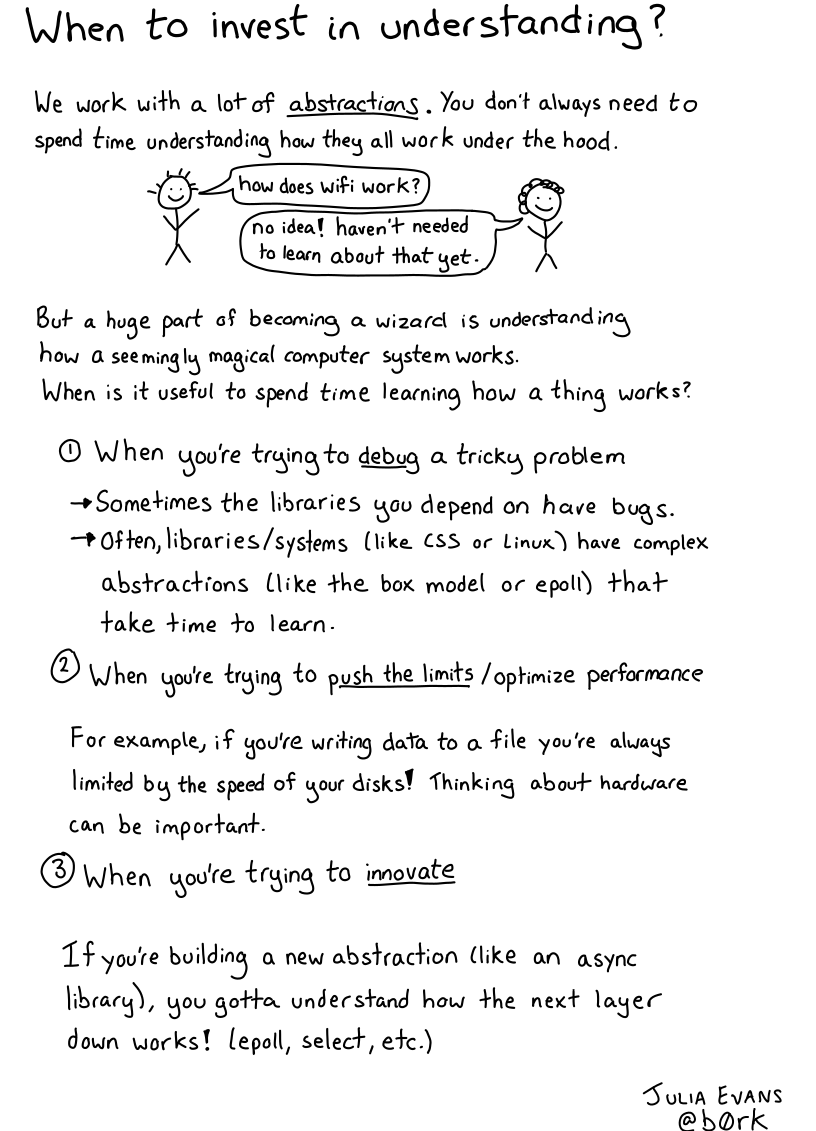 When to invest in understanding?
We work with a lot of abstractions. You don't always need to
spend time understanding how they all work under the hood.
how does wifi work?
no idea! haven't needed
to learn about that yet.
But a huge part of becoming a wizard is understanding
how a seemingly magical computer system works.
When is it useful to spend time learning how a thing works?
① When you're trying to debug a tricky problem
→ Sometimes the libraries you depend on have bugs.
→ Often, libraries/systems (like CSS or Linux) have complex
abstractions (like the box model or epoll) that
take time to learn.
② When you're trying to push the limits / optimize performance
For example, if you're writing data to a file you're always
limited by the speed of your disks! Thinking about hardware
can be important.
③ When you're trying to innovate
If you're building a new abstraction (like an async
library), you gotta understand how the next layer
down works! (epoll, select, etc.)
JULIA EVANS
@b0rk